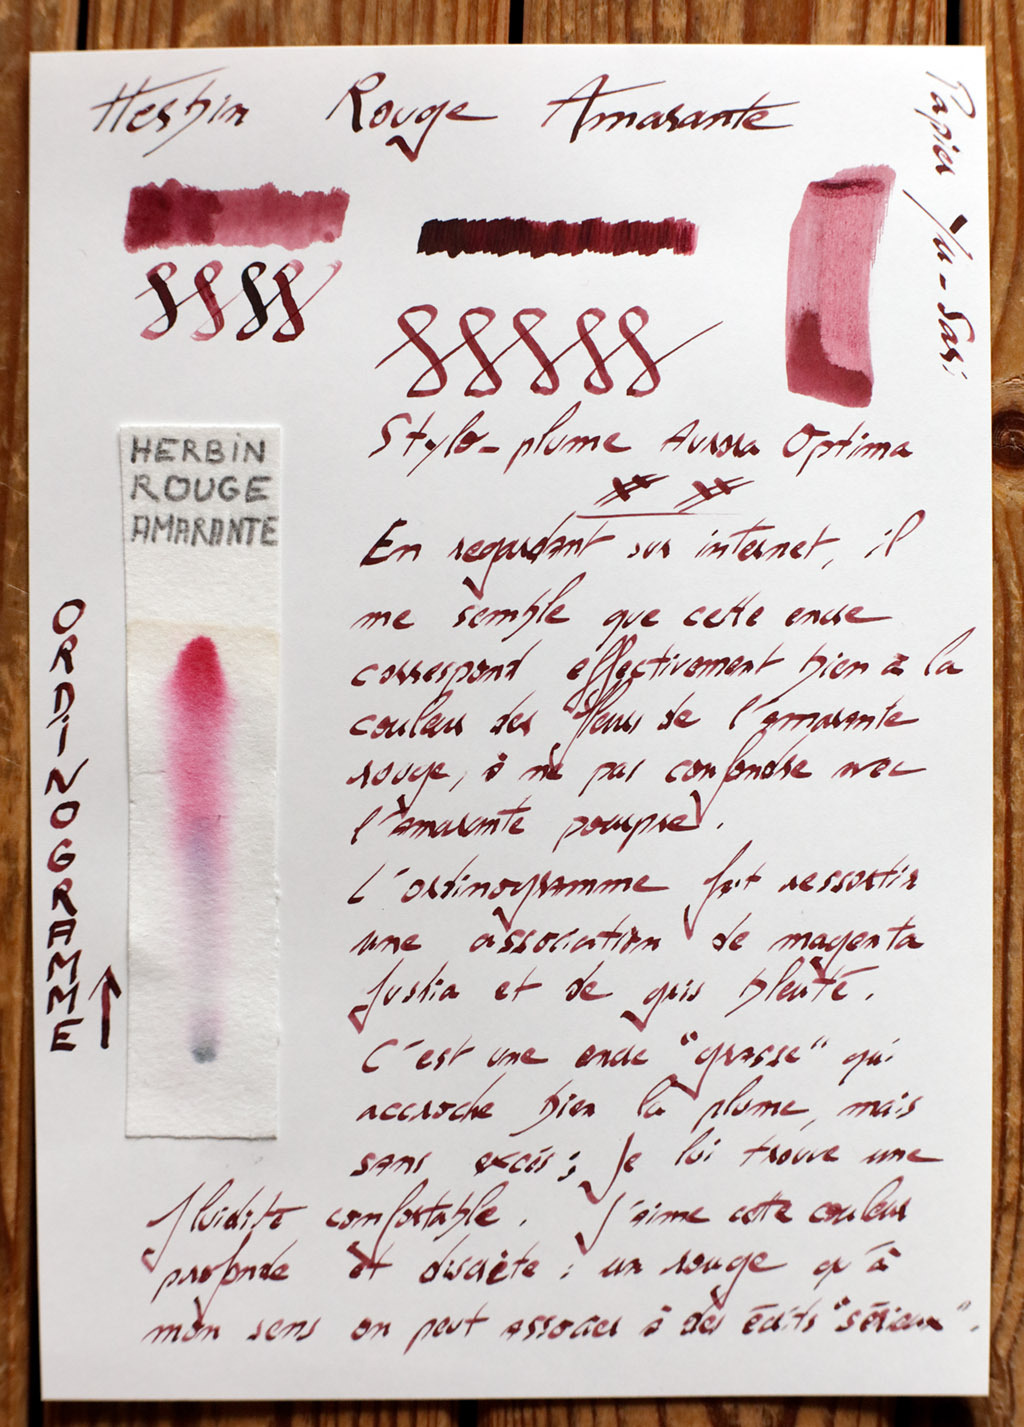 Herbin Rouge Amarante
Papier Yu-Sari
Stylo-plume Aurora Optima
HERBIN
ROUGE
AMARANTE
ORDINOGRAMME
En regardant sur internet, il
me semble que cette encre
correspond effectivement bien à la
couleur des fleurs de l'amarante
rouge, à ne pas confondre avec
l'amarante pourpre.
L'ordinogramme fait ressortir
une association de magenta
fushia et de gris bleuté.
C'est une encre "grasse" qui
accroche bien la plume, mais
sans excès ; je lui trouve une
fluidité confortable. J'aime cette couleur
profonde et discrète : un rouge qu'à
mon sens on peut associer à des écrits "sérieux".